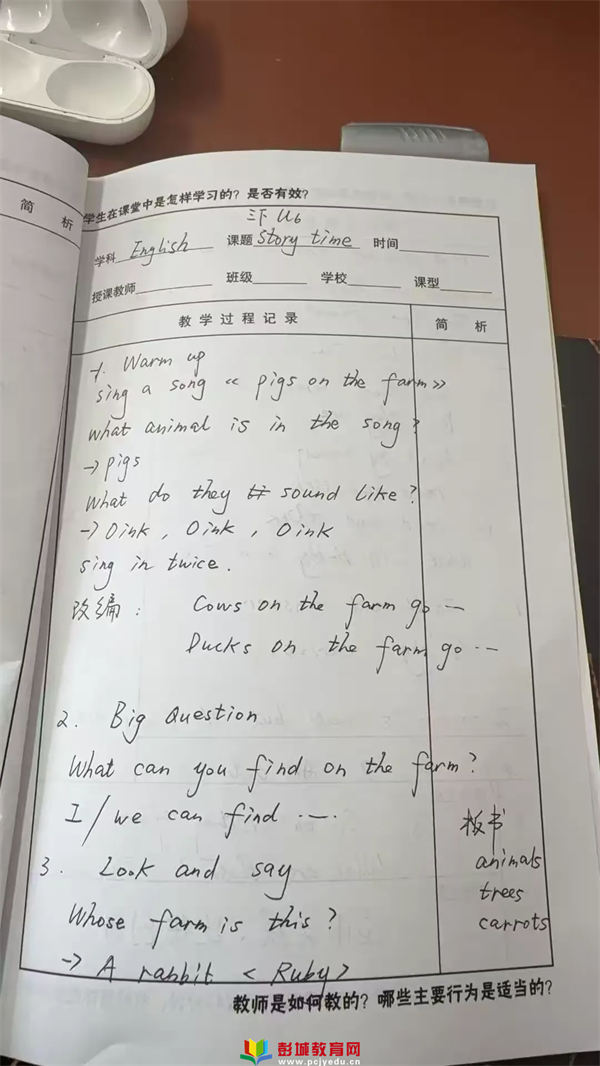 简 析
学生在课堂中是怎样学习的？是否有效？
三下 U6
学科 English 课题 Story time 时间
授课教师 班级 学校 课型
教学过程记录 简 析
1. Warm up
sing a song 《 pigs on the farm》
What animal is in the song?
→ pigs
What do they sound like?
→ Oink, Oink, Oink
sing in twice.
改编： Cows on the farm go …
Ducks on the farm go …
2. Big Question
What can you find on the farm?
I / we can find ….
板书
3. Look and say
animals
trees
Whose farm is this?
carrots
→ A rabbit < Ruby>
教师是如何教的？哪些主要行为是适当的？
彭城教育网
www.pcjyedu.cn